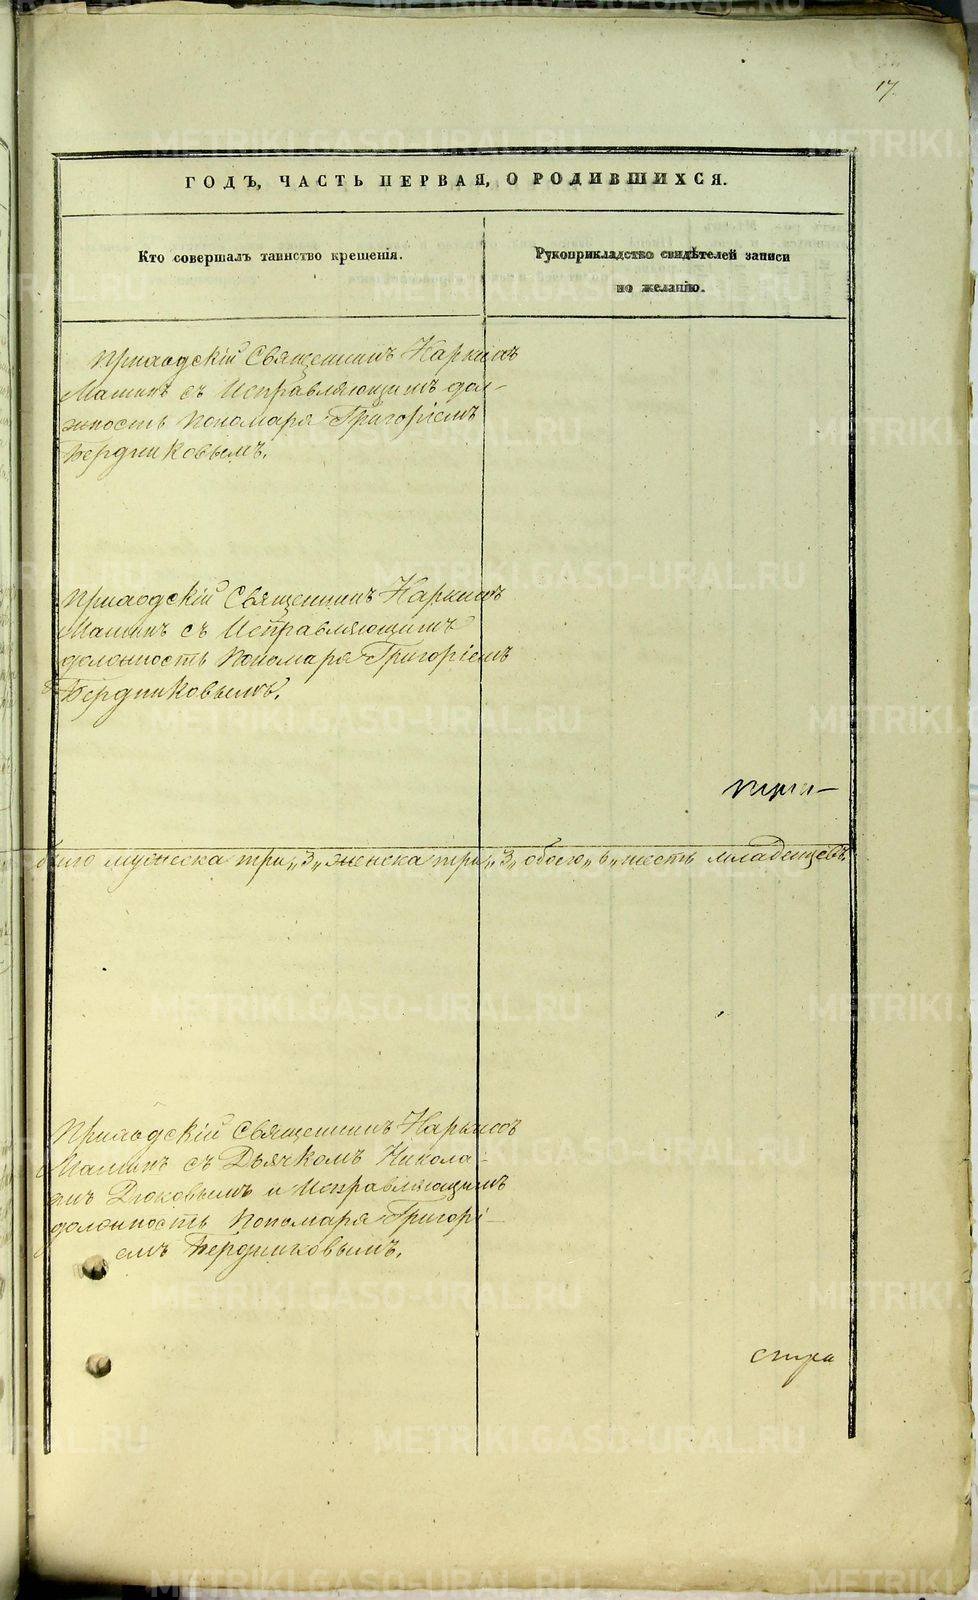 17.
ГОДЪ, ЧАСТЬ ПЕРВАЯ, О РОДИВШИХСЯ.
Кто совершалъ таинство крещенія.
Рукоприкладство свидѣтелей записи
по желанію.
Приходскій Священникъ Наркисъ
Мамин съ Исправляющимъ дол-
жность Пономаря Григоріемъ
Бердниковымъ.
Приходскій Священникъ Наркисъ
Маминъ съ Исправляющимъ
должность Пономаря Григоріемъ
Бердниковымъ.
мужеска три „3„ женска три „3„ обоего „6„ шесть младенцевъ
Приходскій Священникъ Наркисъ
Маминъ съ Дьячкомъ Никола-
емъ Дюковымъ и Исправляющимъ
должность Пономаря Григорі-
емъ Бердниковымъ.
METRIKI.GASO-URAL.RU